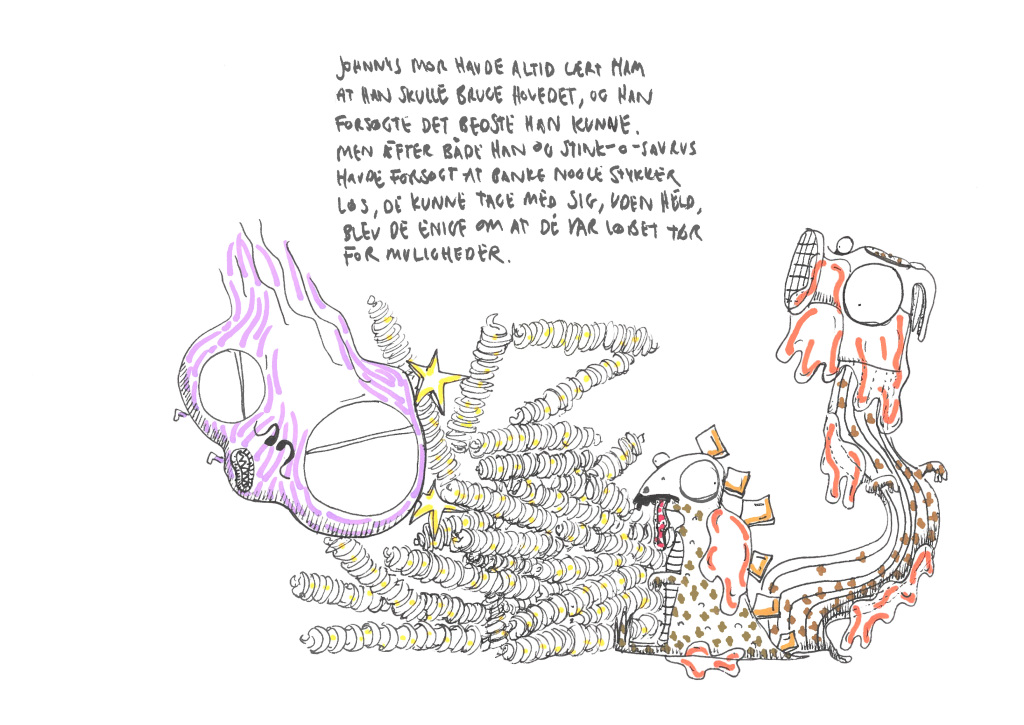 JOHNNYS MOR HAVDE ALTID LÆRT HAM
AT HAN SKULLE BRUGE HOVEDET, OG HAN
FORSØGTE DET BEDSTE HAN KUNNE.
MEN EFTER BÅDE HAN OG STINK-O-SAURUS
HAVDE FORSØGT AT BANKE NOGLE STYKKER
LØS, DE KUNNE TAGE MED SIG, UDEN HELD,
BLEV DE ENIGE OM AT DE VAR LØBET TØR
FOR MULIGHEDER.